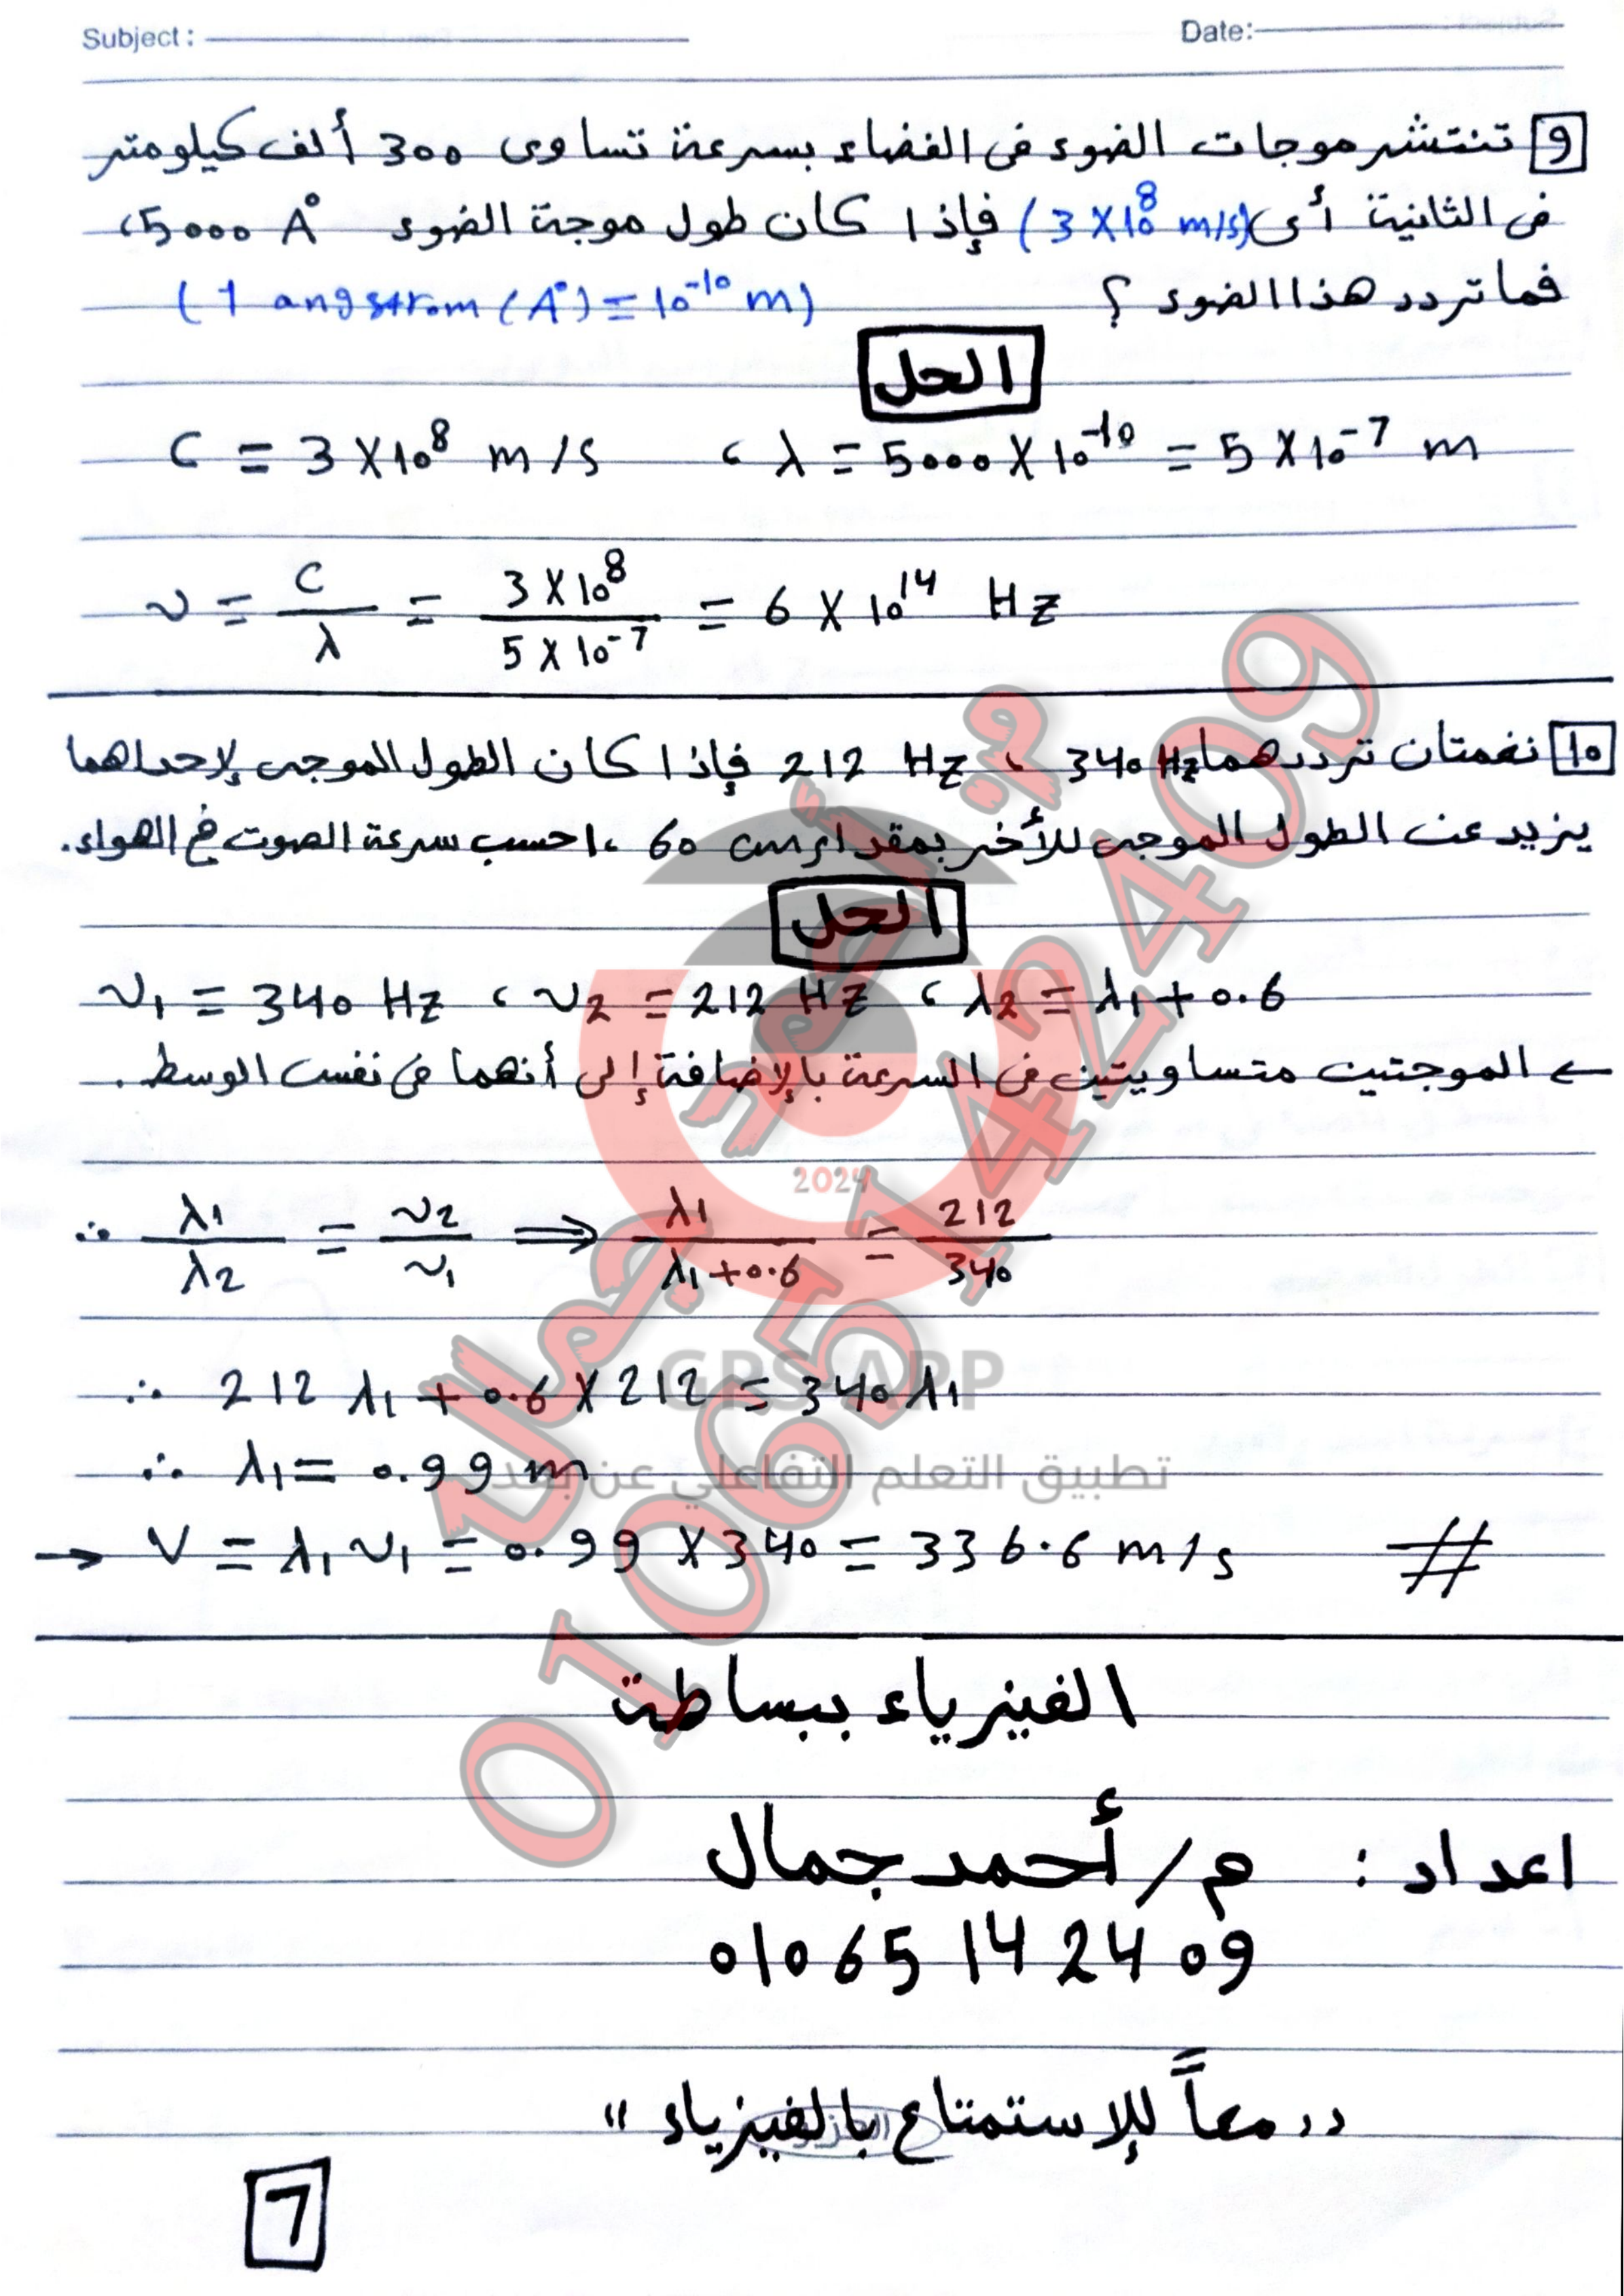 Subject :
Date:
9 تنتشر موجات الضوء فى الفضاء بسرعة تساوى 300 ألف كيلومتر
فى الثانية أى (3 X 10⁸ m/s) فإذا كان طول موجة الضوء 5000 A°،
فما تردد هذا الضوء ؟ (1 angstrom (A°) = 10⁻¹⁰ m)
الحل
C = 3 X 10⁸ m/s ، λ = 5000 X 10⁻¹⁰ = 5 X 10⁻⁷ m
ν = C/λ = 3 X 10⁸ / 5 X 10⁻⁷ = 6 X 10¹⁴ Hz
10 نغمتان ترددهما 340 Hz ، 212 Hz فإذا كان الطول الموجى لإحداهما
يزيد عن الطول الموجى للأخر بمقدار 60 cm ، احسب سرعة الصوت فى الهواء.
الحل
ν₁ = 340 Hz ، ν₂ = 212 Hz ، λ₂ = λ₁ + 0.6
← الموجتين متساويتين فى السرعة بالإضافة إلى أنهما فى نفس الوسط .
∴ λ₁/λ₂ = ν₂/ν₁ ⟹ λ₁/λ₁+0.6 = 212/340
∴ 212 λ₁ + 0.6 X 212 = 340 λ₁
∴ λ₁ = 0.99 m
→ V = λ₁ ν₁ = 0.99 X 340 = 336.6 m/s #
الفيزياء ببساطة
اعداد : م/أحمد جمال
01065 14 24 09
"معاً للإستمتاع بالفيزياء"
7
م/أحمد جمال
01065142409
2024
GPS APP
تطبيق التعلم التفاعلي عن بعد